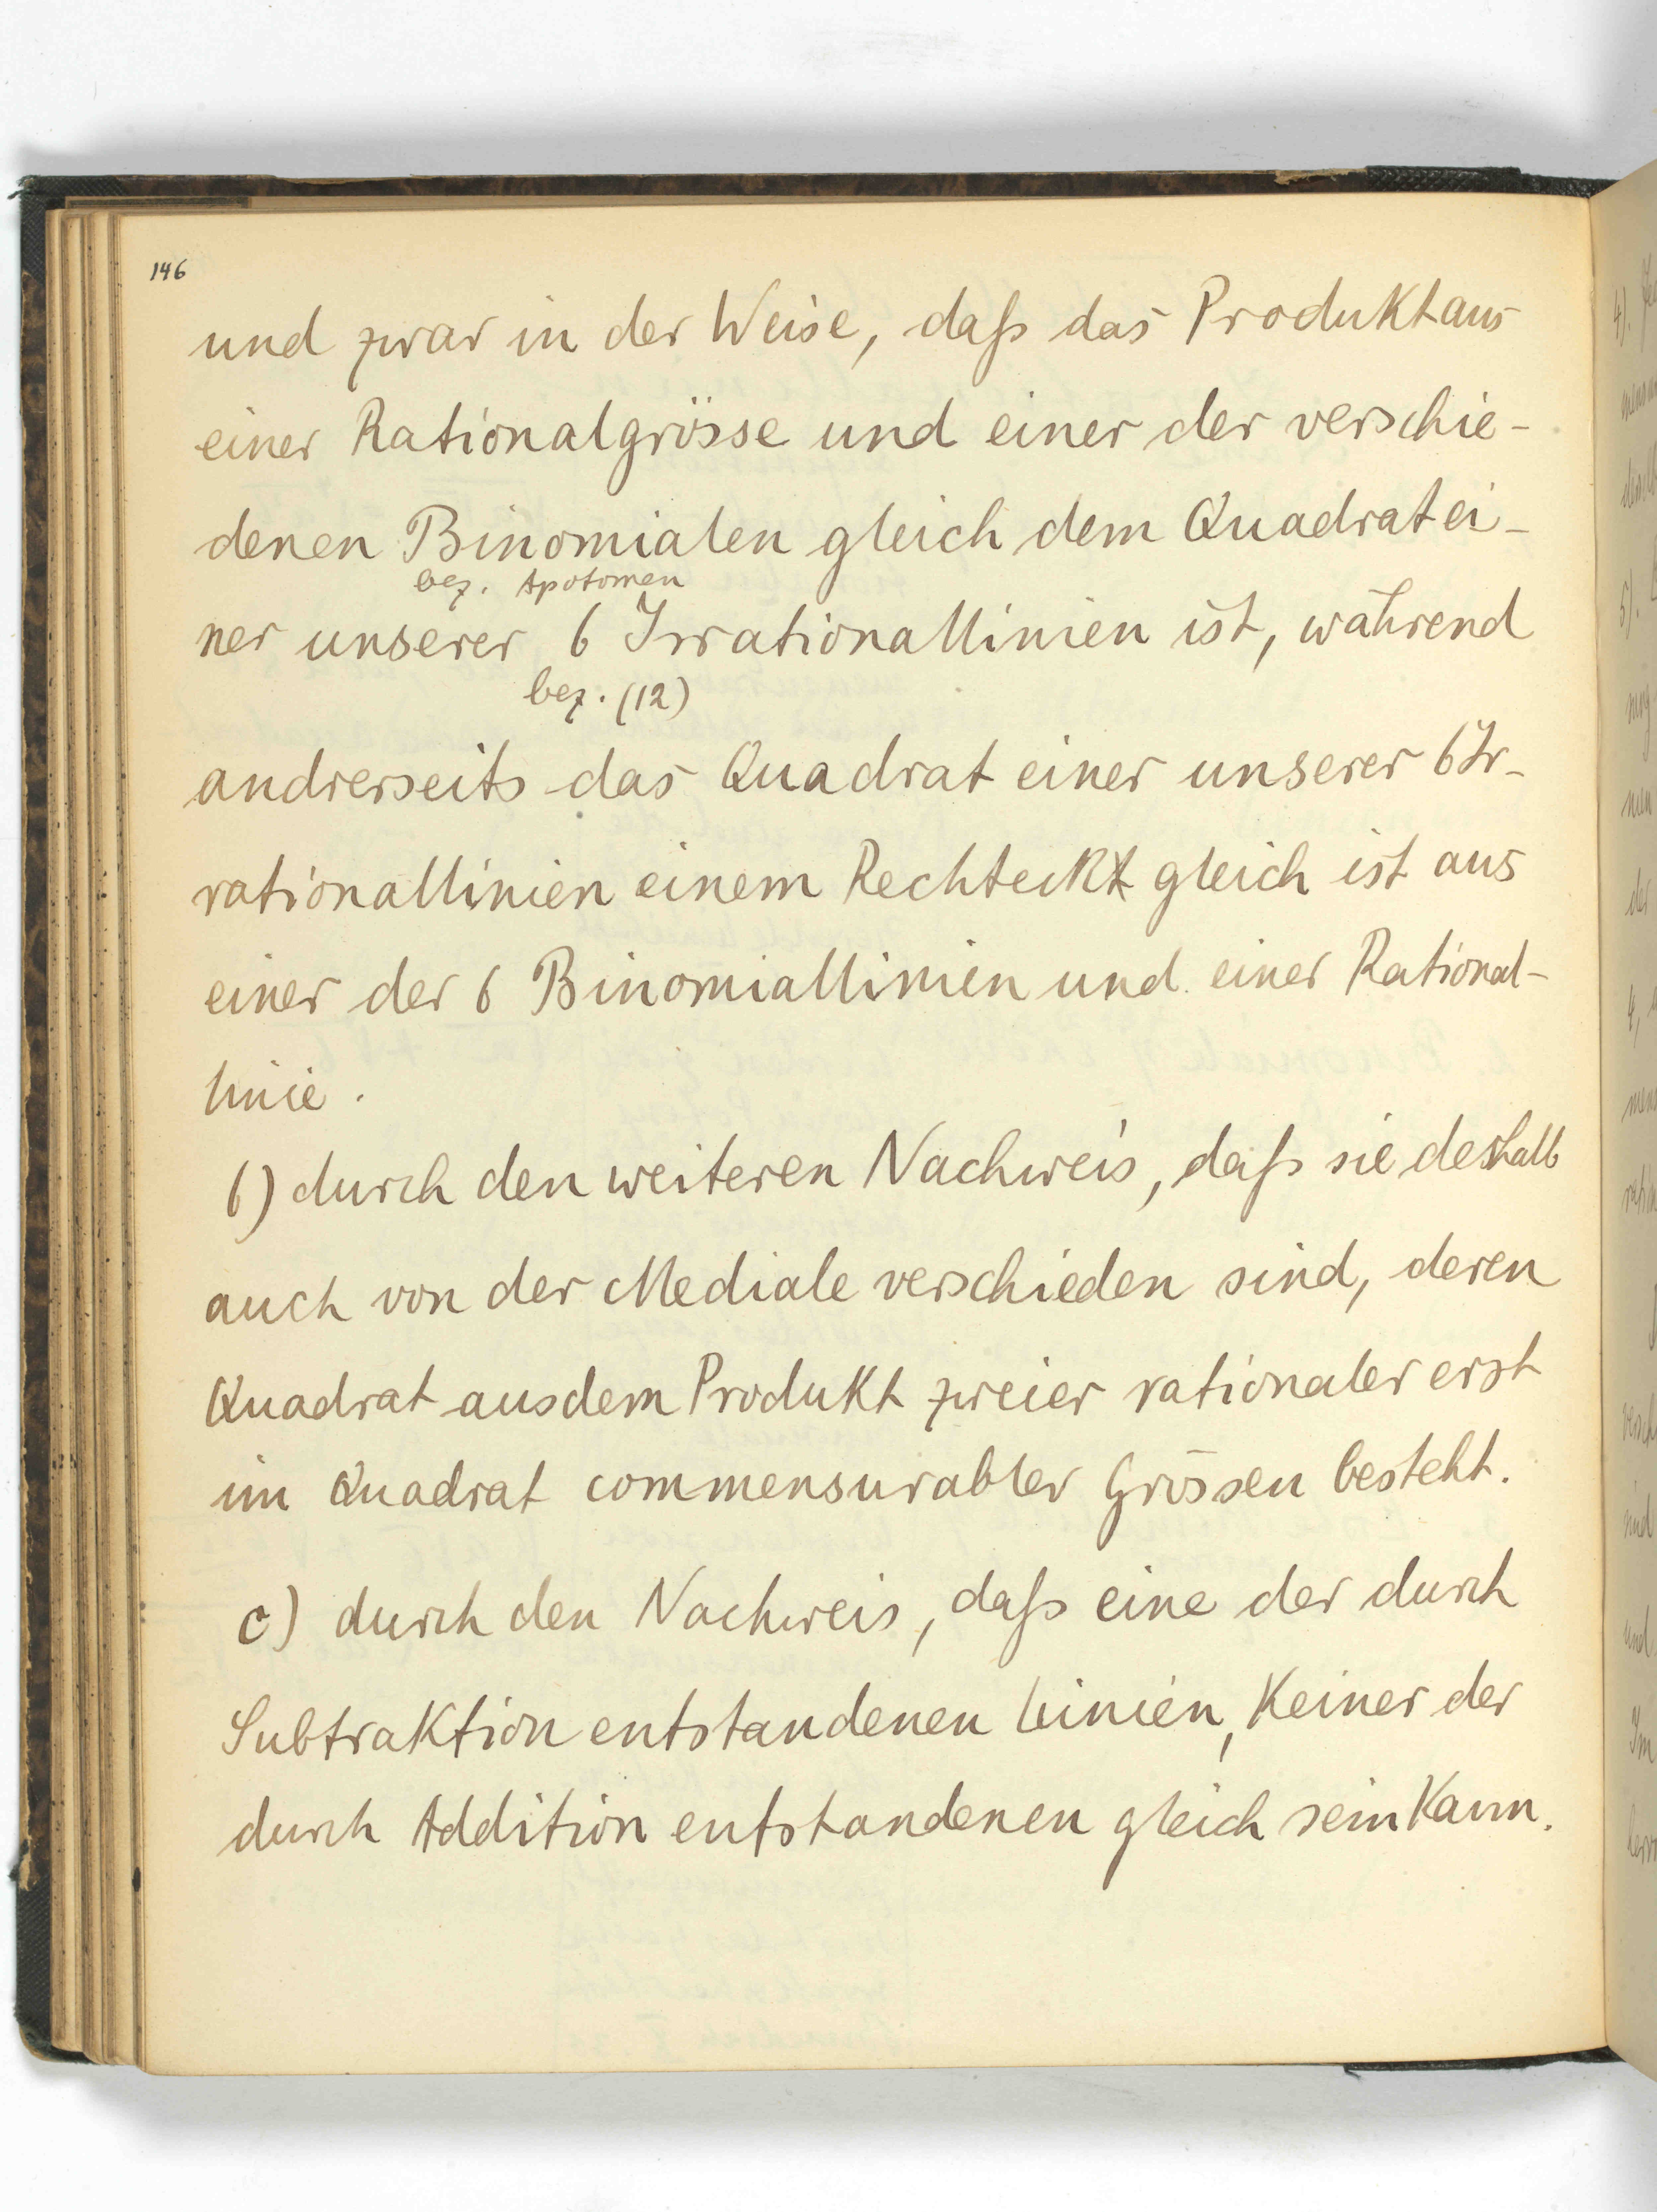 146
und zwar in der Weise, daß das Produkt aus
einer Rationalgrösse und einer der verschie-
denen Binomialen gleich dem Quadrat ei-
bez. Apotomen
ner unserer 6 Irrationallinien ist, während
bez. (12)
andrerseits das Quadrat einer unserer 6 Ir-
rationallinien einem Rechteck gleich ist aus
einer der 6 Binomiallinien und einer Rational-
linie.
b) durch den weiteren Nachweis, daß sie deshalb
auch von der Mediale verschieden sind, deren
Quadrat aus dem Produkt zweier rationaler erst
im Quadrat commensurabler Grössen besteht.
c) durch den Nachweis, daß eine der durch
Subtraktion entstandenen Linien, keiner der
durch Addition entstandenen gleich sein kann.